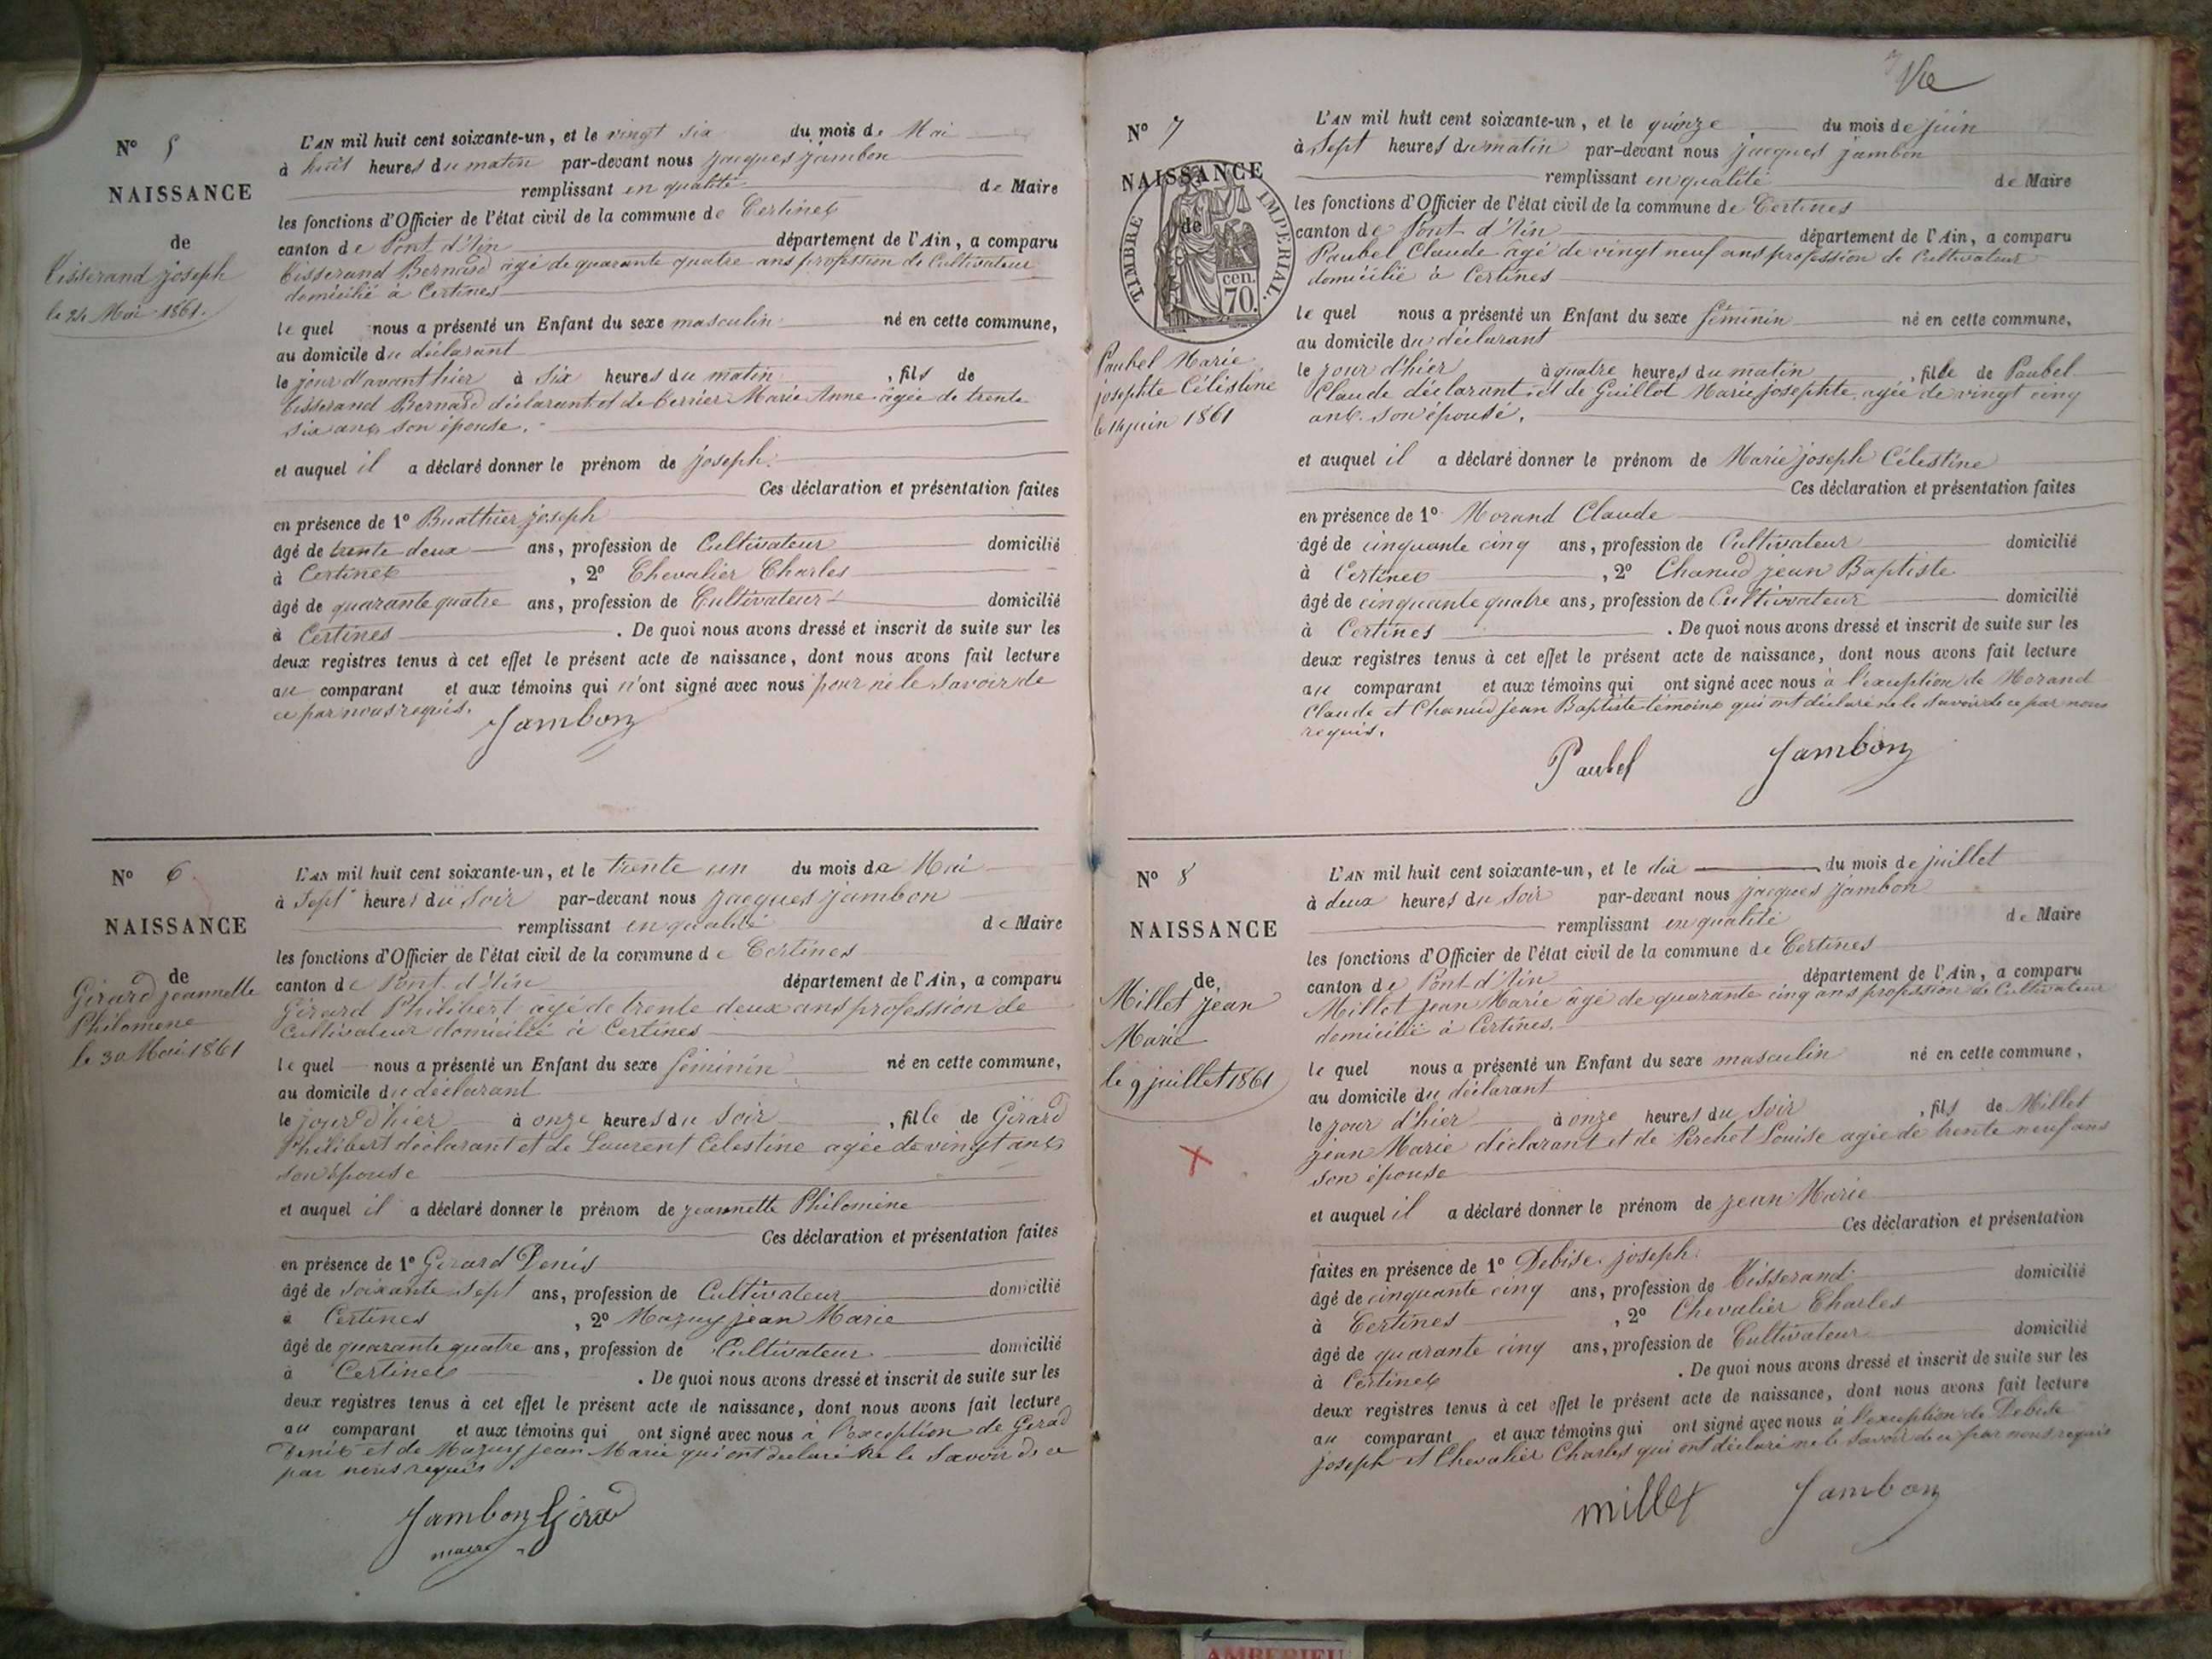 N° 5
NAISSANCE
de
Tisserand joseph
le 24 Mai 1861.
L'AN mil huit cent soixante-un, et le vingt six du mois de Mai
à huit heures du matin par-devant nous jacques jambon
remplissant en qualité de Maire
les fonctions d'Officier de l'état civil de la commune de Certines
canton de Pont d'Ain département de l'Ain, a comparu
Tisserand Bernard agé de quarante quatre ans profession de Cultivateur
domicilié à Certines
lequel nous a présenté un Enfant du sexe masculin né en cette commune,
au domicile du déclarant
le jour d'avant hier à six heures du matin, fils de
Tisserand Bernard déclarant et de Terrier Marie Anne agée de trente
six ans son épouse.
et auquel il a déclaré donner le prénom de joseph.
Ces déclaration et présentation faites
en présence de 1° Buathier joseph
âgé de trente deux ans, profession de Cultivateur domicilié
à Certines, 2° Chevalier Charles
âgé de quarante quatre ans, profession de Cultivateur domicilié
à Certines. De quoi nous avons dressé et inscrit de suite sur les
deux registres tenus à cet effet le présent acte de naissance, dont nous avons fait lecture
au comparant et aux témoins qui n'ont signé avec nous pour ne le savoir de
ce par nous requis.
Jambon
N° 6
NAISSANCE
de
Girard jeannette
Philomene
le 30 Mai 1861
L'AN mil huit cent soixante-un, et le trente un du mois de Mai
à Sept heures du soir par-devant nous jacques jambon
remplissant en qualité de Maire
les fonctions d'Officier de l'état civil de la commune de Certines
canton de Pont d'Ain département de l'Ain, a comparu
Girard Philibert agé de trente deux ans profession de
Cultivateur domicilié à Certines
lequel nous a présenté un Enfant du sexe féminin né en cette commune,
au domicile du déclarant
le jour d'hier à onze heures du soir, fille de Girard
Philibert déclarant et de Laurent Célestine agée de vingt ans
son épouse
et auquel il a déclaré donner le prénom de jeannette Philomène
Ces déclaration et présentation faites
en présence de 1° Girard Denis
âgé de soixante sept ans, profession de Cultivateur domicilié
à Certines, 2° Mazuy jean Marie
âgé de quarante quatre ans, profession de Cultivateur domicilié
à Certines. De quoi nous avons dressé et inscrit de suite sur les
deux registres tenus à cet effet le présent acte de naissance, dont nous avons fait lecture
au comparant et aux témoins qui ont signé avec nous à l'exception de Girard
Denis et de Mazuy jean Marie qui ont déclaré ne le savoir de ce
par nous requis
Jambon Girard
maire
Vie
N° 7
NAISSANCE
de
TIMBRE IMPERIAL.
cen.
70.
Paubel Marie
josephte Célestine
le 14 juin 1861
L'AN mil huit cent soixante-un, et le quinze du mois de juin
à Sept heures du matin par-devant nous jacques jambon
remplissant en qualité de Maire
les fonctions d'Officier de l'état civil de la commune de Certines
canton de Pont d'Ain département de l'Ain, a comparu
Paubel Claude agé de vingt neuf ans profession de Cultivateur
domicilié à Certines
lequel nous a présenté un Enfant du sexe féminin né en cette commune,
au domicile du déclarant
le jour d'hier à quatre heures du matin, fille de Paubel
Claude déclarant et de Guillot Marie josephte, agée de vingt cinq
ans son épouse.
et auquel il a déclaré donner le prénom de Marie joseph Célestine
Ces déclaration et présentation faites
en présence de 1° Morand Claude
âgé de cinquante cinq ans, profession de Cultivateur domicilié
à Certines, 2° Chanud jean Baptiste
âgé de cinquante quatre ans, profession de Cultivateur domicilié
à Certines. De quoi nous avons dressé et inscrit de suite sur les
deux registres tenus à cet effet le présent acte de naissance, dont nous avons fait lecture
au comparant et aux témoins qui ont signé avec nous à l'exception de Morand
Claude et Chanud jean Baptiste témoins qui ont déclaré ne le savoir de ce par nous
requis.
Paubel Jambon
N° 8
NAISSANCE
de
Millet jean
Marie
le 9 juillet 1861
L'AN mil huit cent soixante-un, et le dix du mois de juillet
à deux heures du soir par-devant nous jacques jambon
remplissant en qualité de Maire
les fonctions d'Officier de l'état civil de la commune de Certines
canton de Pont d'Ain département de l'Ain, a comparu
Millet jean Marie âgé de quarante cinq ans profession de Cultivateur
domicilié à Certines.
lequel nous a présenté un Enfant du sexe masculin né en cette commune,
au domicile du déclarant
le jour d'hier à onze heures du soir, fils de Millet
jean Marie déclarant et de Perchet Louise agée de trente neuf ans
son épouse
et auquel il a déclaré donner le prénom de jean Marie
Ces déclaration et présentation
faites en présence de 1° Debise joseph.
âgé de cinquante cinq ans, profession de Tisserand domicilié
à Certines, 2° Chevalier Charles
âgé de quarante cinq ans, profession de Cultivateur domicilié
à Certines. De quoi nous avons dressé et inscrit de suite sur les
deux registres tenus à cet effet le présent acte de naissance, dont nous avons fait lecture
au comparant et aux témoins qui ont signé avec nous à l'exception de Debise
joseph et Chevalier Charles qui ont déclaré ne le savoir de ce par nous requis
millet Jambon
AMBERIEU